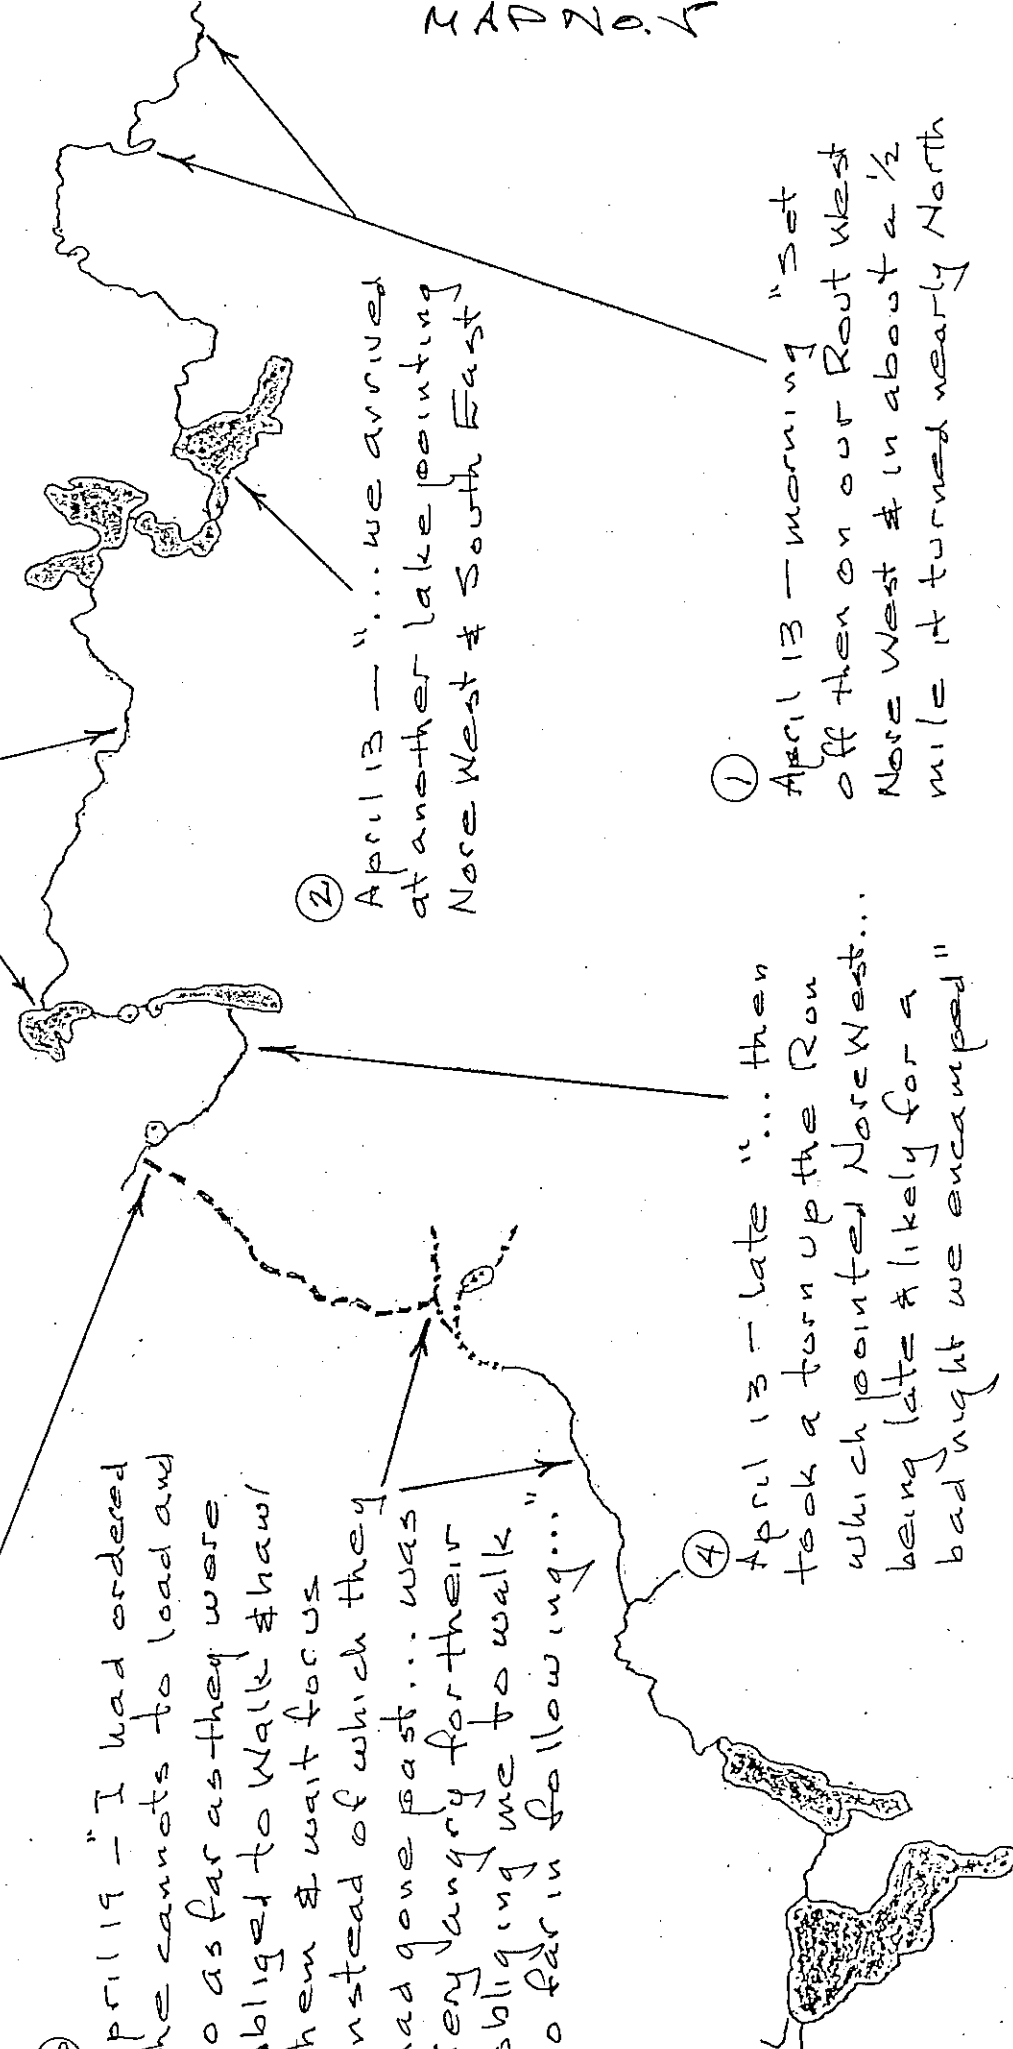 MAP NO. 5
①
April 13 — morning "Set
off then on our Rout West
Nore West & in about a ½
mile it turned nearly North
②
April 13 — "... we arrived
at another lake pointing
Nore West & South East
④
April 13 — late "... then
took a turn up the Run
which pointed Nore West...
being late & likely for a
bad night we encamped"
pril 19 — "I had ordered
he cannots to load and
o as far as they were
bliged to Walk & hawl
hem & wait for us
nstead of which they
had gone past... was
very angry for their
bliging me to walk
o far in following..."